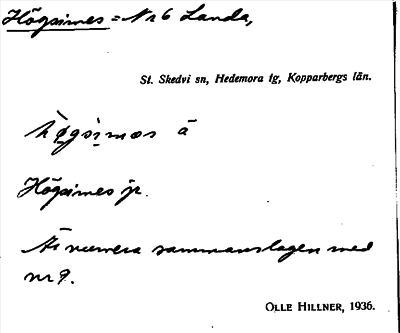 Högsimes = Nr 6 Landa,
St. Skedvi sn, Hedemora tg, Kopparbergs län.
høgsimos å
Högsimes jr.
Är numera sammanslagen med
nr 9.
OLLE HILLNER, 1936.